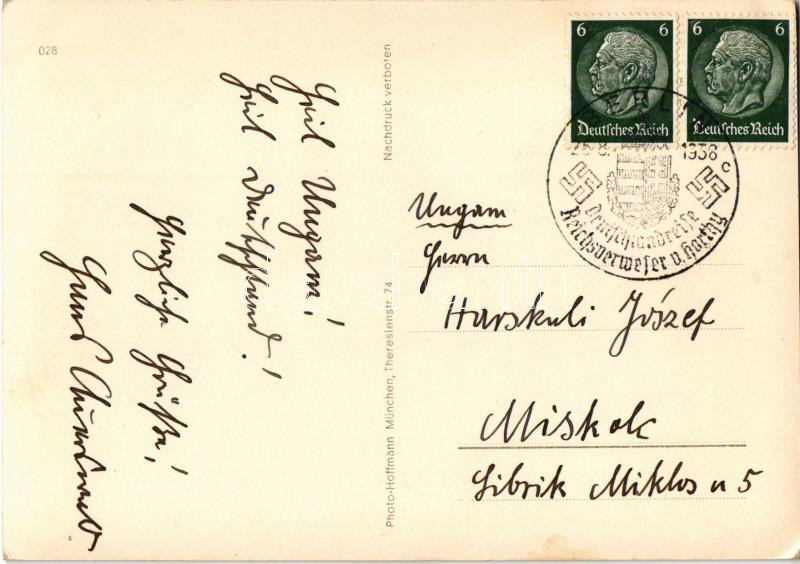 028
Heil Ungarn!
Heil Deutschland!
Herzliche Grüße!
Nachdruck verboten
Photo-Hoffmann München, Theresienstr. 74
6 6
Deutsches Reich
6 6
Deutsches Reich
BERLIN
1938
c
Deutschlandreise
Reichsverweser v. Horthy
Ungarn
Herrn
Harskuli József
Miskolc
Gibrik Miklos u 5
6